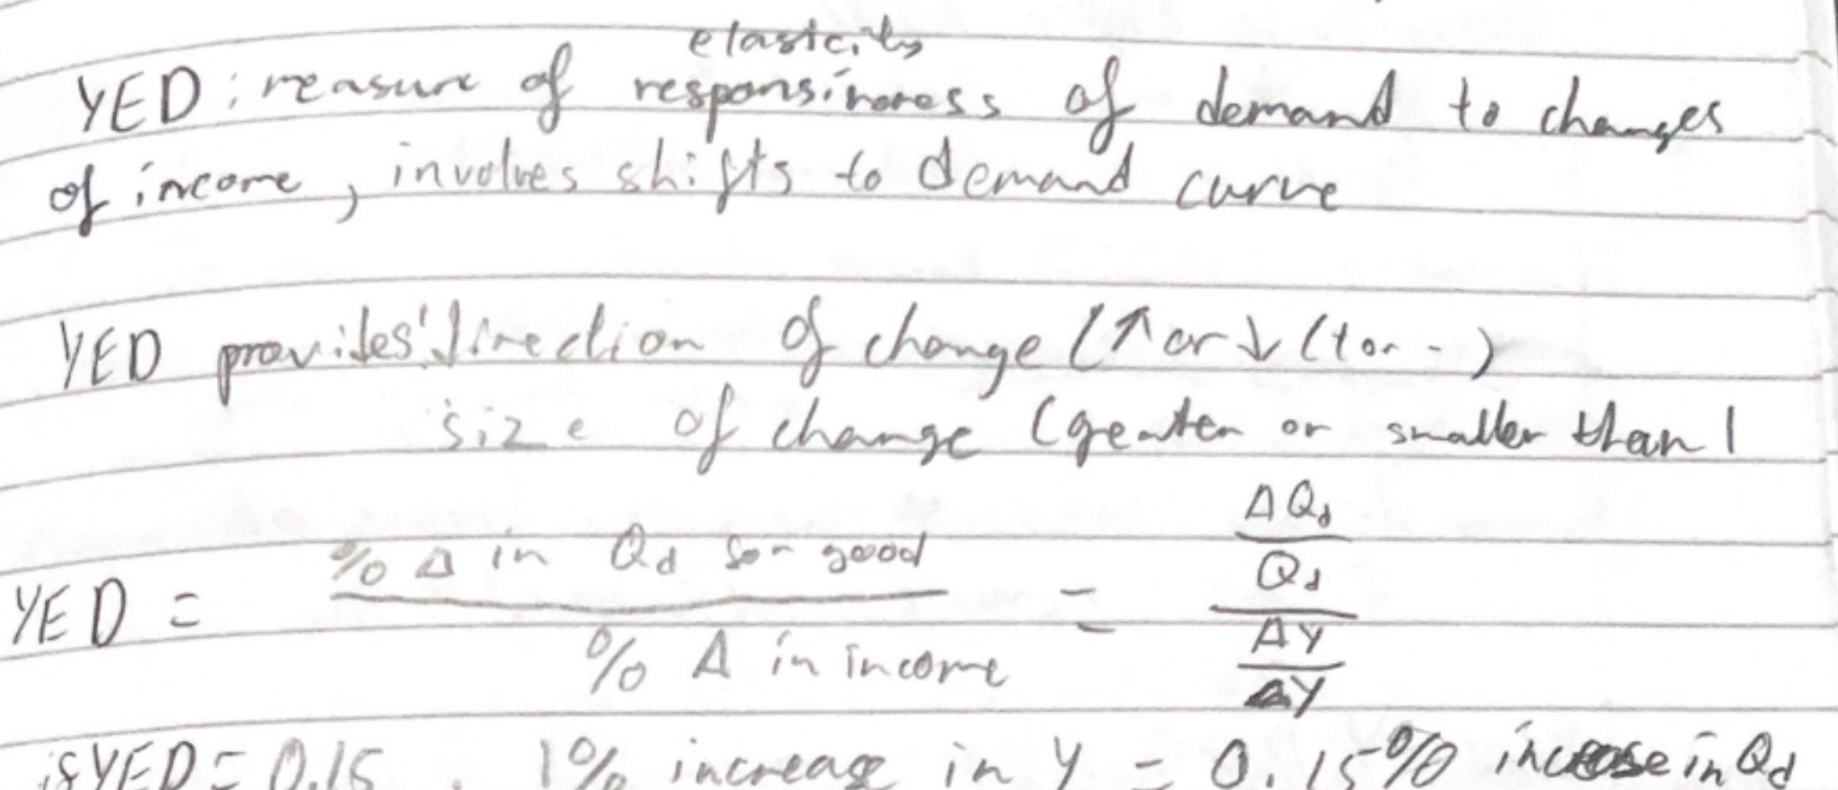 elasticity
YED : measure of responsiveness of demand to changes
of income, involves shifts to demand curve
YED provides direction of change (↑ or ↓ (+ or -)
size of change (greater or smaller than 1
YED = % Δ in Qd for good / % Δ in income = ΔQd / Qd / ΔY / Y
if YED = 0.15, 1% increase in Y = 0.15% increase in Qd